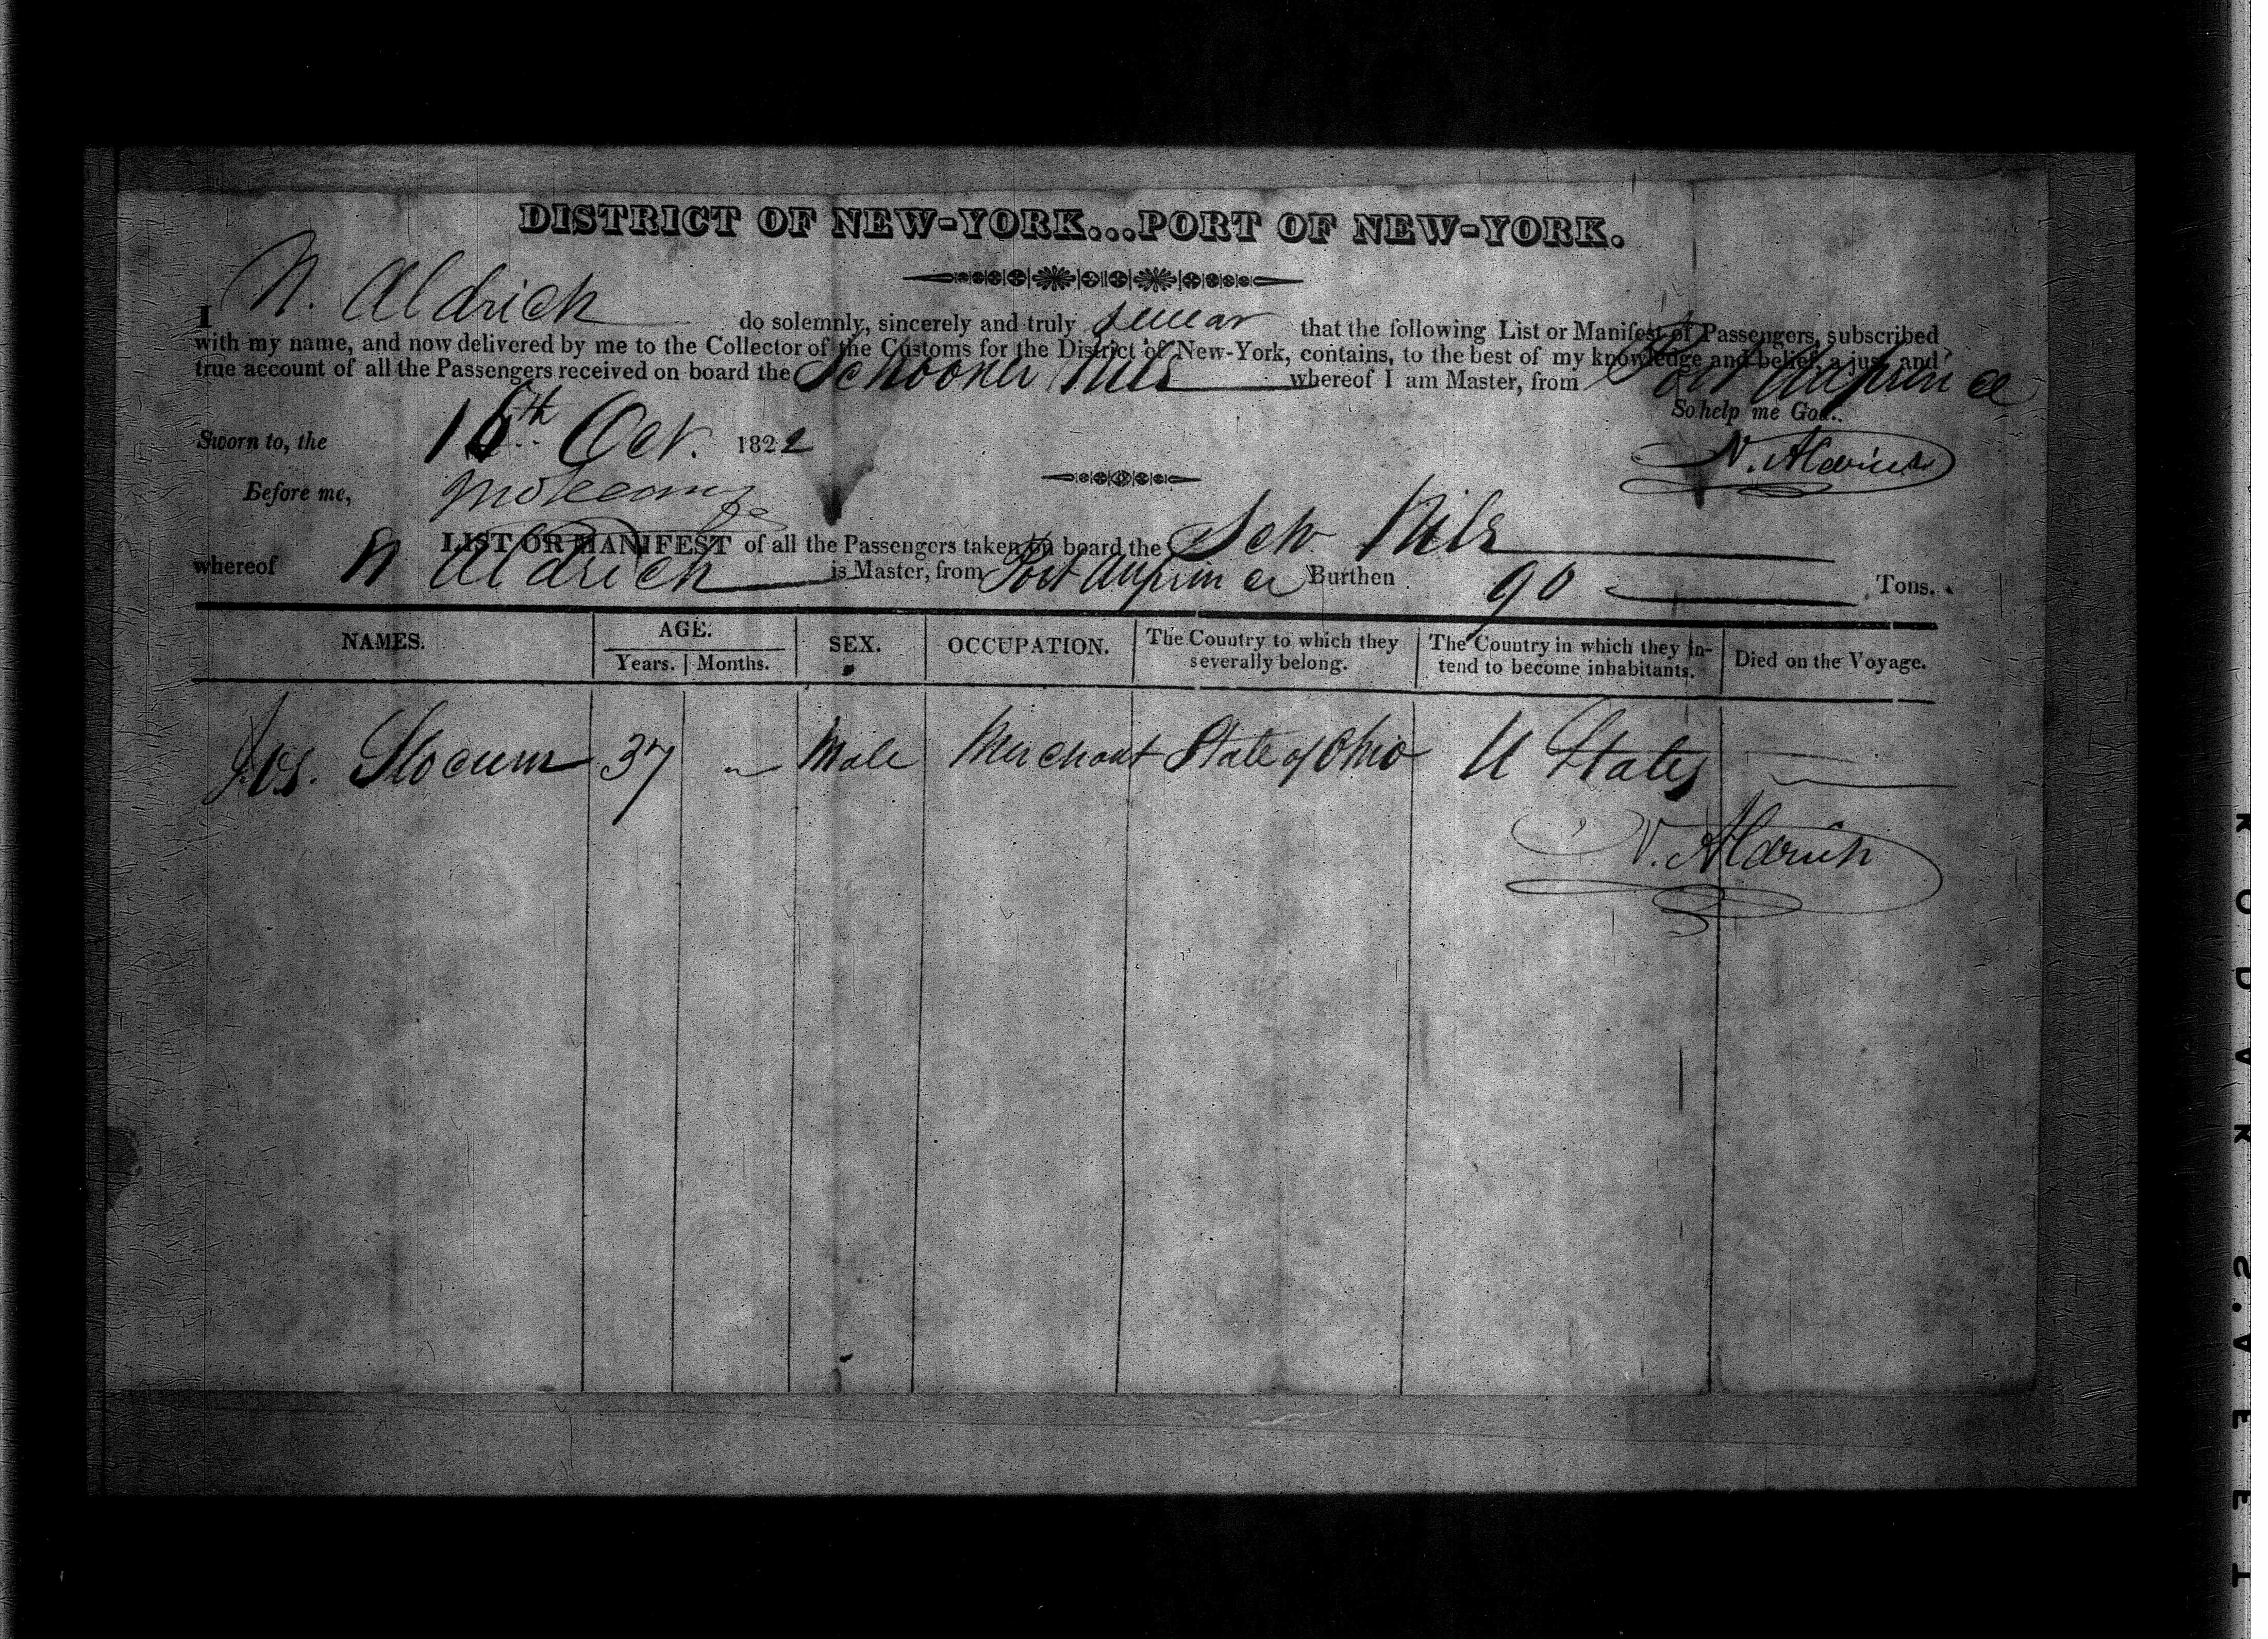 DISTRICT OF NEW-YORK...PORT OF NEW-YORK.
I N. Aldrich do solemnly, sincerely and truly swear that the following List or Manifest of Passengers, subscribed
with my name, and now delivered by me to the Collector of the Customs for the District of New-York, contains, to the best of my knowledge and belief, a just and
true account of all the Passengers received on board the Schooner Nile whereof I am Master, from Port Auprince
So help me God.
Sworn to, the 16th Oct. 1822
N. Aldrich
Before me,
LIST OR MANIFEST of all the Passengers taken on board the Schr Nile
whereof N Aldrich is Master, from Port Auprince Burthen 90 Tons.
NAMES. AGE. SEX. OCCUPATION. The Country to which they severally belong. The Country in which they intend to become inhabitants. Died on the Voyage.
Years. Months.
Jos. Slocum 37 Male Merchant State of Ohio U States
N. Aldrich